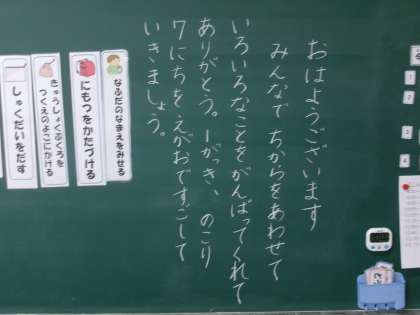 おはようございます
みんなで ちからをあわせて
いろいろなことをがんばってくれて
ありがとう。1がっき、のこり
7にちを えがおですごして
いきましょう。
なふだのなまえをみせる
にもつをかたづける
きゅうしょくぶくろを
つくえのよこにかける
しゅくだいをだす